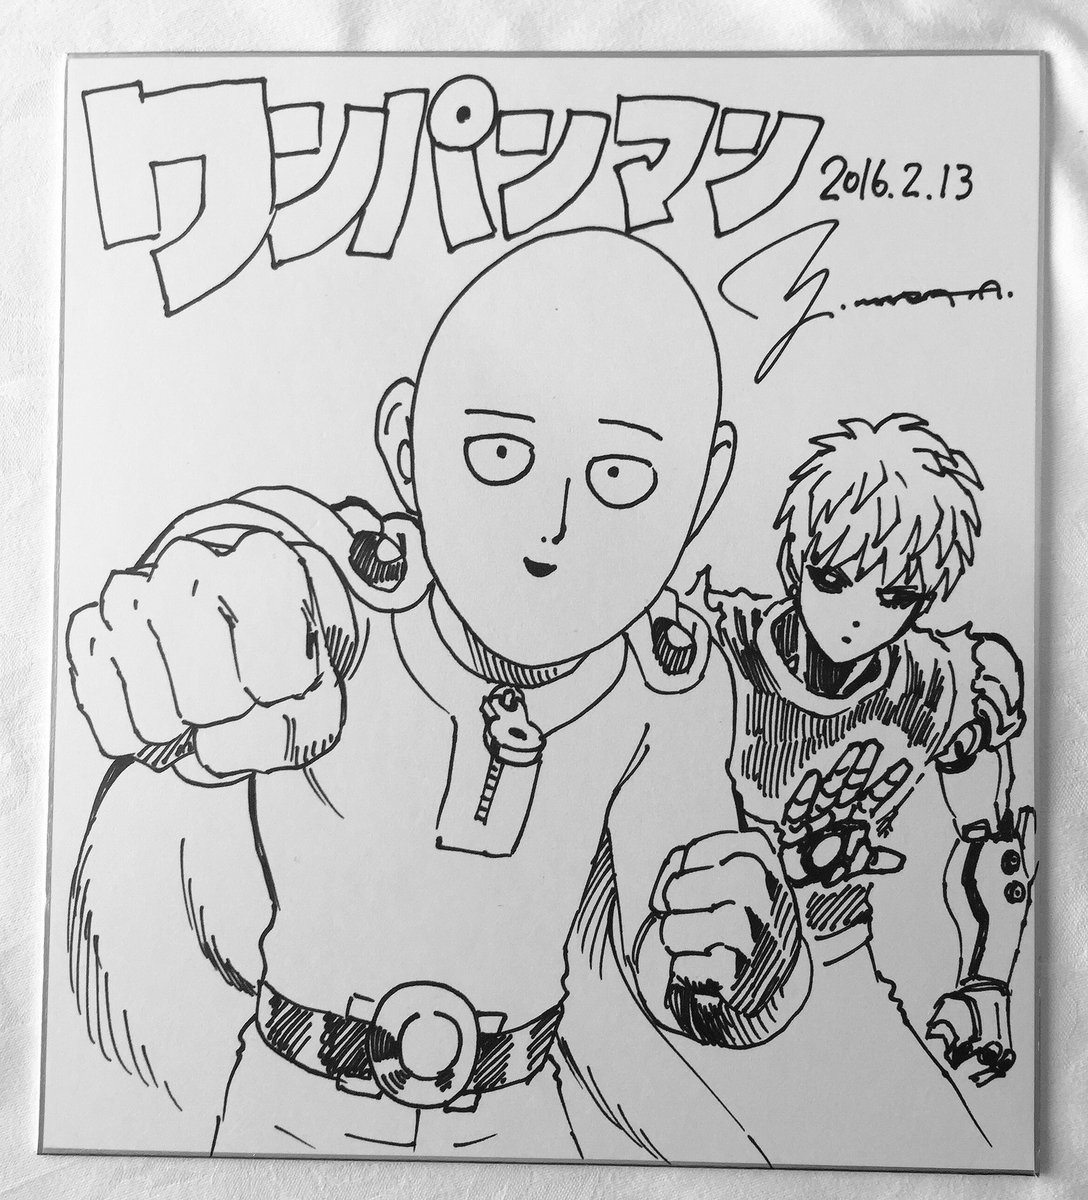 ワンパンマン
2016.2.13